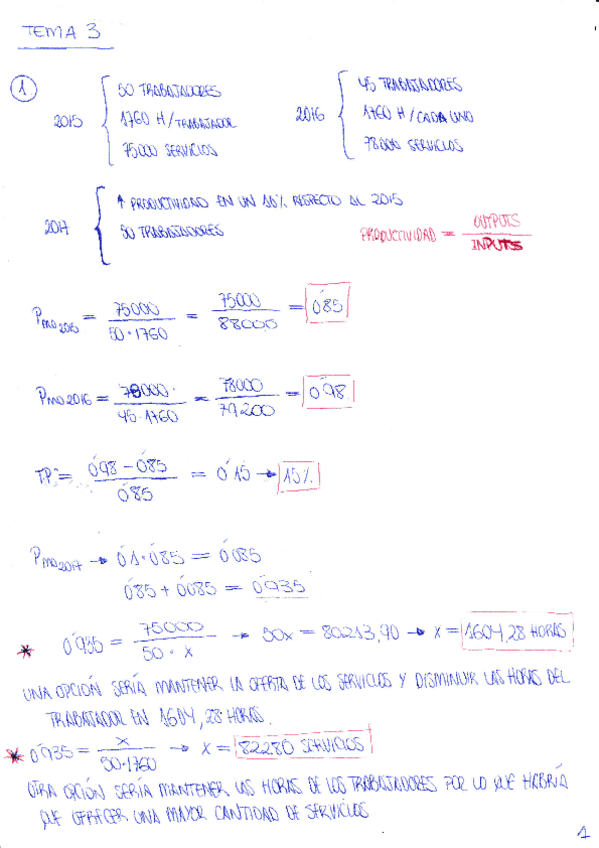 TEMA 3
1
2015 { 50 TRABAJADORES
1760 H / TRABAJADOR
75000 SERVICIOS
2016 { 45 TRABAJADORES
1760 H / CADA UNO
78000 SERVICIOS
2017 { ↑ PRODUCTIVIDAD EN UN 10% RESPECTO AL 2015
50 TRABAJADORES
PRODUCTIVIDAD = OUTPUTS / INPUTS
Pmo2015 = 75000 / 50·1760 = 75000 / 88000 = 0'85
Pmo2016 = 78000 / 45·1760 = 78000 / 79200 = 0'98
T.P. = 0'98 - 0'85 / 0'85 = 0'15 → 15%
Pmo2017 → 0'1 · 0'85 = 0'085
0'85 + 0'085 = 0'935
* 0'935 = 75000 / 50 · x → 50x = 80213,90 → x = 1604,28 HORAS
UNA OPCIÓN SERÍA MANTENER LA OFERTA DE LOS SERVICIOS Y DISMINUIR LAS HORAS DEL
TRABAJADOR EN 1604,28 HORAS.
* 0'935 = x / 50·1760 → x = 82280 SERVICIOS
OTRA OPCIÓN SERIA MANTENER LAS HORAS DE LOS TRABAJADORES POR LO QUE HABRÍA
QUE OFRECER UNA MAYOR CANTIDAD DE SERVICIOS
1